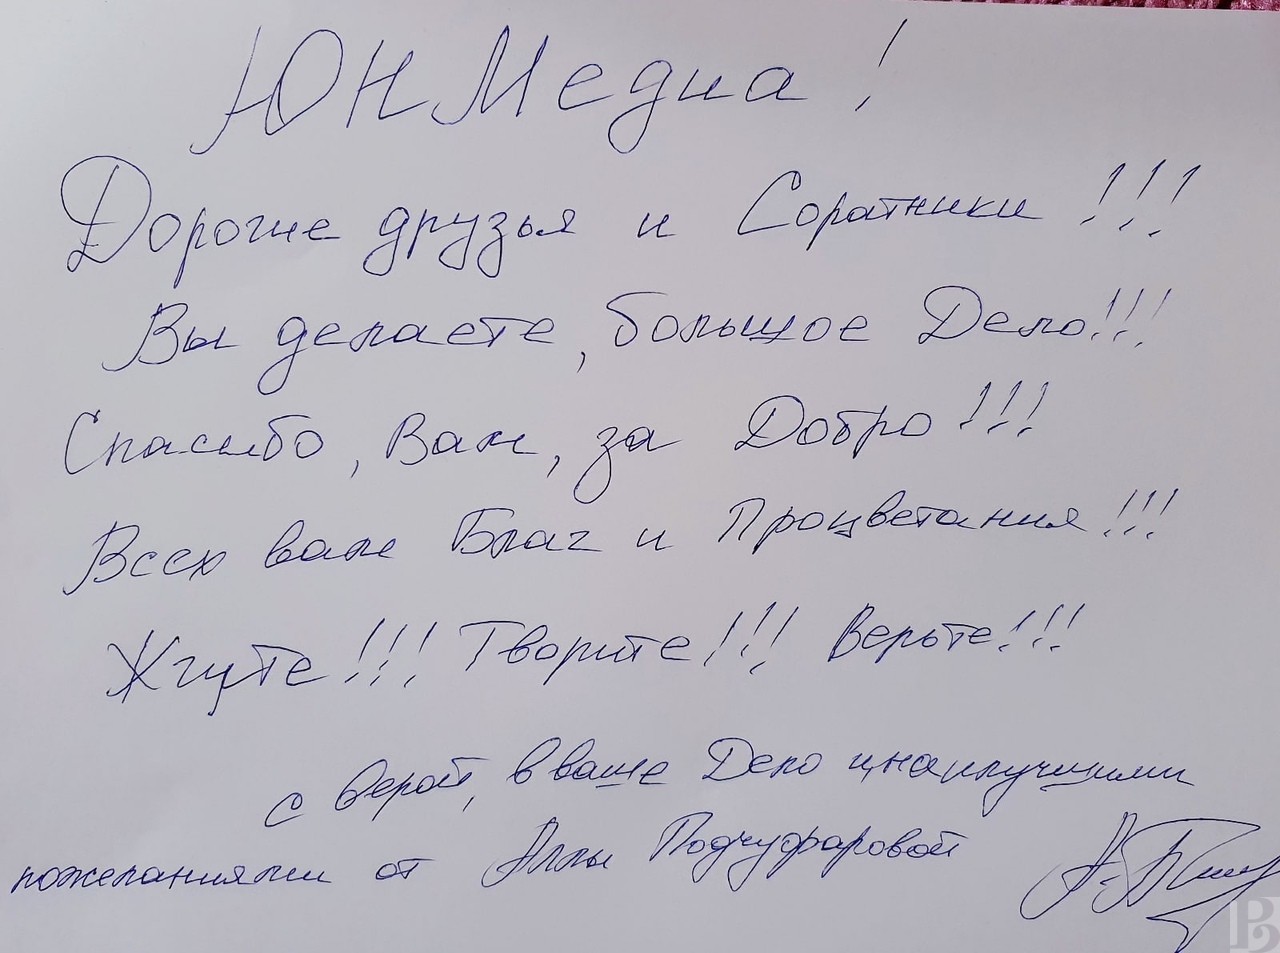 ЮНМедиа!
Дорогие друзья и Соратники!!!
Вы делаете, большое Дело!!!
Спасибо, Вам, за Добро!!!
Всех вам Благ и Процветания!!!
Жгите!!! Творите!!! Верьте!!!
с верой, в ваше Дело и наилучшими
пожеланиями от Аллы Подчуфаровой